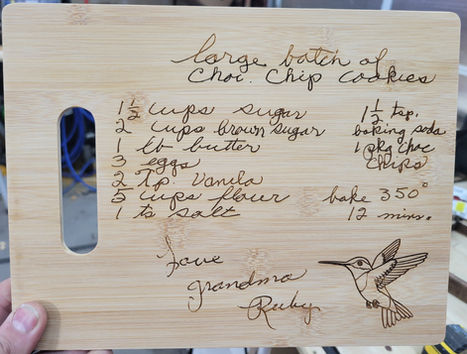 large batch of
Choc. Chip Cookies
1 1/2 cups sugar
2 cups brown sugar
1 lb butter
3 eggs
2 Tp. Vanila
5 cups flour
1 ts salt
1 1/2 tsp.
baking soda
1 pkg choc
chips
bake 350°
12 mins.
Love
Grandma
Ruby